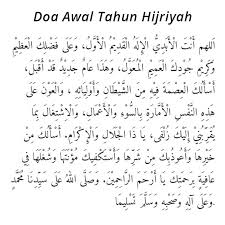 Doa Awal Tahun Hijriyah
اَللهم أَنْتَ الْأَبَدِيُّ الْإِلَهُ الْقَدِيْمُ الْأَوَّلُ، وَعَلَى فَضْلِكَ الْعَظِيْمِ
وَكَرِيْمِ جُوْدِكَ الْعَمِيْمِ الْمُعَوَّلُ، وَهَذَا عَامٌ جَدِيْدٌ قَدْ أَقْبَلَ،
أَسْأَلُكَ الْعِصْمَةَ فِيْهِ مِنَ الشَّيْطَانِ وَأَوْلِيَائِهِ ، وَالْعَوْنَ عَلَى
هَذِهِ النَّفْسِ الْأَمَّارَةِ بِالسُّوْءِ وَالْأَعْمَالِ، وَالْاِشْتِغَالَ بِمَا
يُقَرِّبُنِيْ إِلَيْكَ زُلْفَى، يَا ذَا الْجَلَالِ وَالْإِكْرَامِ. أَسْأَلُكَ مِنْ
خَيْرِهَا وَأَعُوْذُبِكَ مِنْ شَرِّهَا وَأَسْتَكْفِيْكَ مُؤْنَتَهَا وَشُغْلَهَا فِي
عَافِيَةٍ بِرَحْمَتِكَ يَا أَرْحَمَ الرَّاحِمِيْنَ. وَصَلَّى اللهُ عَلَى سَيِّدِنَا مُحَمَّدٍ
وَعَلَى آلِهِ وَصَحْبِهِ وَسَلَّمَ تَسْلِيْمًا.